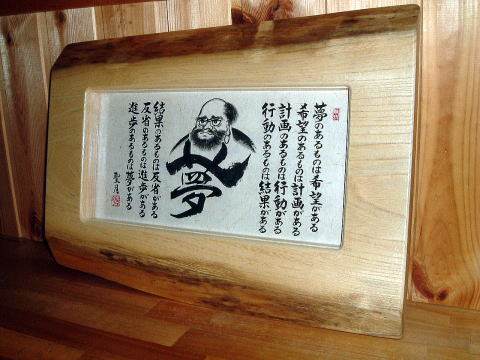 夢のあるものは希望がある
希望のあるものは計画がある
計画のあるものは行動がある
行動のあるものは結果がある
夢
結果のあるものは反省がある
反省のあるものは進歩がある
進歩のあるものは夢がある
聖月